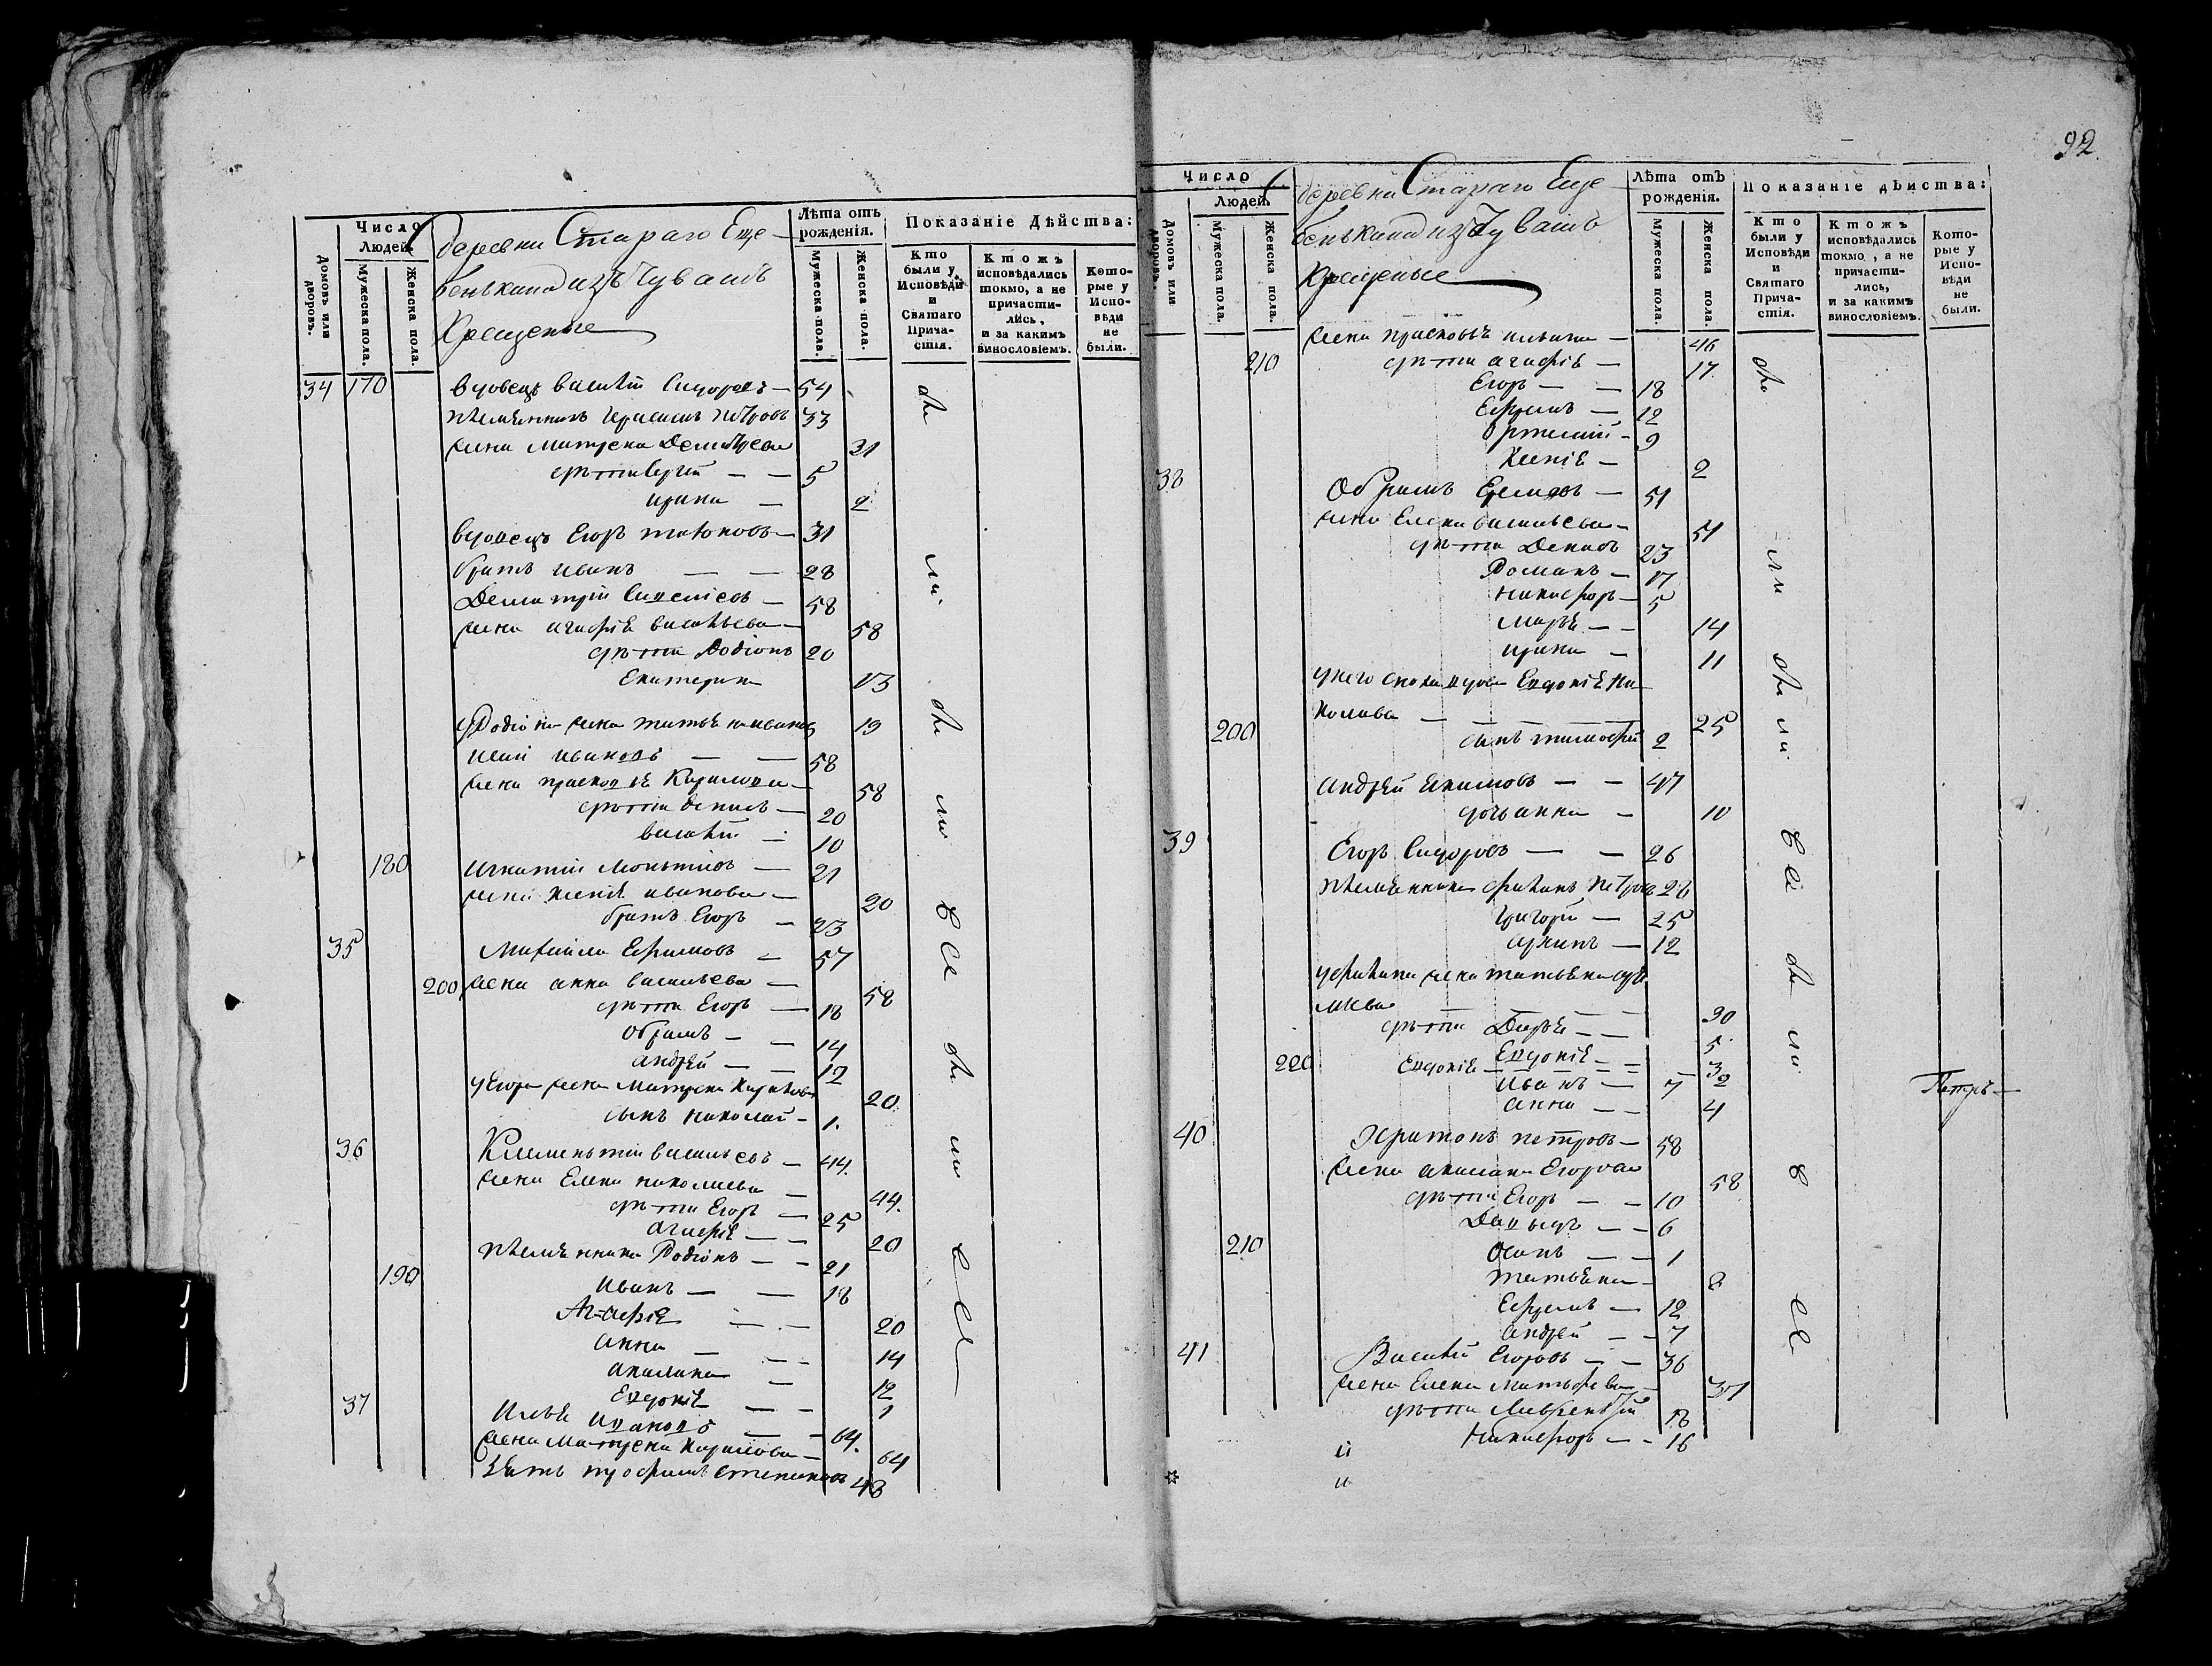 Число
Людей.
Домовъ или дворовъ.
Мужеска пола.
Женска пола.
деревни Стараго Еще-
бенькина изъ Чувашъ
Крещеные
Лѣта отъ
рожденія.
Мужеска пола.
Женска пола.
Показаніе Дѣйства:
Кто
были у
Исповѣди
и
Святаго
Прича-
стія.
Ктожъ
исповѣдались
токмо, а не
причасти-
лись,
и за какимъ
винословіемъ.
Кото-
рые у
Испо-
вѣди
не
были.
34 170 вдовецъ василій Сидоровъ — 54
племянникъ герасимъ петровъ 33
жена матрена Деметрева 31
дѣти сергѣй — — 5
ирина — 2
вдовецъ Егоръ — 31
братъ иванъ — — 28
Дематрiй — 58
жена агафiя васильева — 58
дѣти Родіонъ 20
Екатерина 13
уРодіона жена татьяна иванова 19
иванъвъ — — 58
жена прасковья Кирилова — 58
дѣти денисъ — 20
василій — 10
180 игнатiй — 21
жена ксенiя иванова — 20
братъ Егоръ — 23
35 Михайла Ефимовъ — 57
200 жена анна васильева — 58
дѣти Егоръ — 18
обрамъ — — 14
андрей — — 12
уЕгора жена Матрена 20
сынъ николай — 1.
36 Клементiй васильевъ — 44.
жена Елена николаева — 44.
дѣти Егоръ — 25
агафiя — — 20
племянники Родіонъ — — 21
190 иванъ — — 18
Агафiя — — 20
анна — — — 14
акилина — 12
Евдокiя — — 1
37 Илья ивановъ — — 64.
жена Матрена Кирилова — 64
зять трофимъ степановъ 43
92.
Число
Людей.
Домовъ или дворовъ.
Мужеска пола.
Женска пола.
деревни Стараго Еще-
бенькина изъ Чувашъ
Крещеные
Лѣта отъ
рожденія.
Мужеска пола.
Женска пола.
Показаніе дѣиства:
Кто
были у
Исповѣди
и
Святаго
Прича-
стія.
Ктожъ
исповѣдались
токмо, а не
причасти-
лись,
и за какимъ
винословіемъ.
Кото-
рые у
Испо-
вѣди
не
были.
жена прасковья — 46
210 дѣти агафiя — 17
Егоръ — — 18
Ефремъ — 12
— 9
Ксенiя — 2
38 Обрамъ — 51
жена Елена васильева — 51
дѣти Денисъ 23
Романъ — 17
никифоръ — 5
Марья — — 14
ирина — 11
унего снохи вдова Евдокiя Ни-
колаева — 25
200 сынъ тимофей 2
андрей якимовъ — — 47
дочь анна — 10
39 Егоръ Сидоровъ — — 26
племянники петровъ 28
григорiй — 25
архипъ — 12
жена татьяна
— 30
дѣти Дарья — — 5
Евдокiя — 3
220 Евдокiя — 2
иванъ — 7
анна — — 4
Петръ —
40 Харитонъ петровъ — 58
жена акилина Егорова 58
дѣти Егоръ — — 10
Давыдъ — — 6
210 Осипъ — — 1
татьяна — 8
Ефремъ — 12
андрей — — 7
41 Василiй Егоровъ — — 36
жена Елена — 37
дѣти Лаврентiй 18
никифоръ — — 16